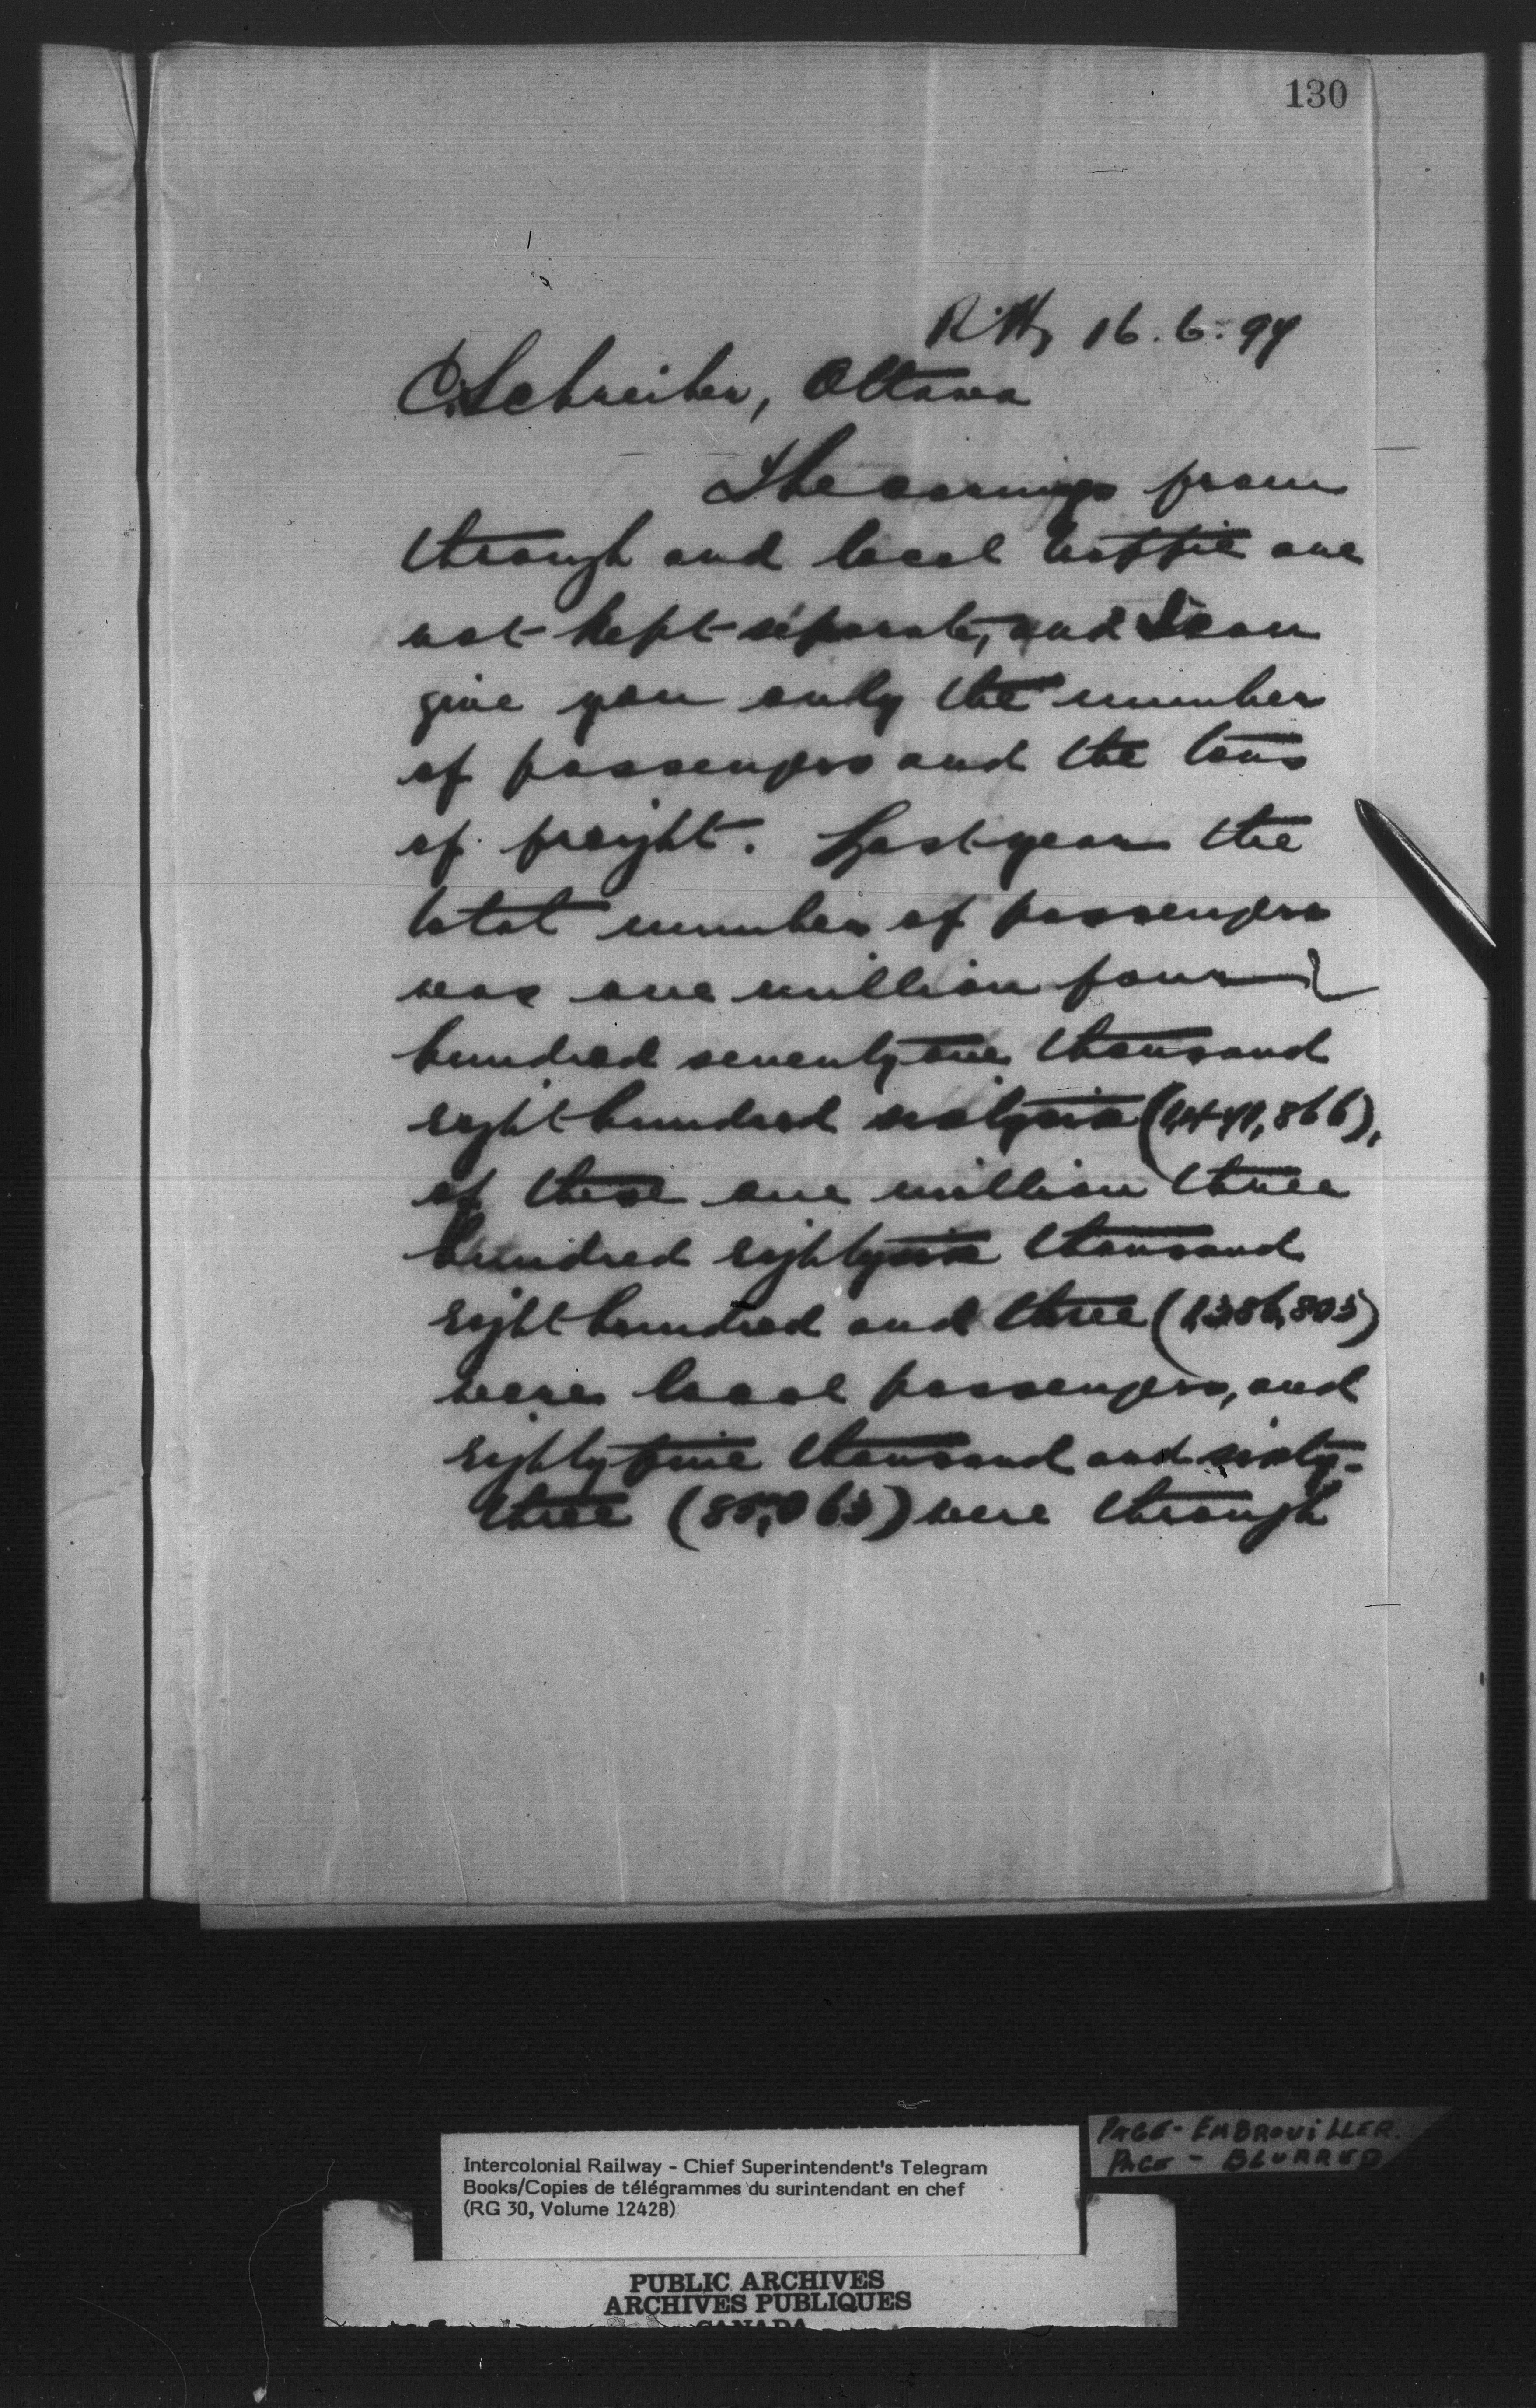 130
16.6.97
C. Schreiber, Ottawa
The earnings from
through and local traffic are
not kept separate, and I can
give you only the number
of passengers and the tons
of freight. Last year the
total number of passengers
was one million four
hundred seventy one thousand
eight hundred sixty six (1,471,866),
of these one million three
hundred eighty six thousand
eight hundred and three (1,386,803)
were local passengers, and
eighty five thousand and sixty-
three (85,063) were through
PAGE - EMBROUILLER.
PAGE - BLURRED
Intercolonial Railway - Chief Superintendent's Telegram
Books/Copies de télégrammes du surintendant en chef
(RG 30, Volume 12428)
PUBLIC ARCHIVES
ARCHIVES PUBLIQUES
CANADA